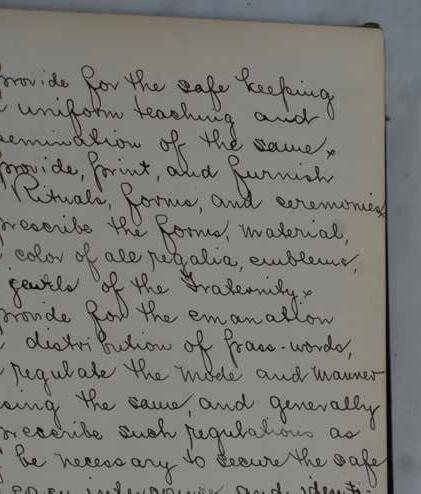 provide for the safe keeping
uniform teaching and
semination of the same.
provide, print, and furnish
Rituals, forms, and ceremonies
prescribe the forms, material,
color of all regalia, emblems,
jewels of the Fraternity.
provide for the emanation
distribution of pass-words,
regulate the mode and manner
sing the same, and generally
prescribe such regulations as
be necessary to secure the safe
easy intercourse and identi